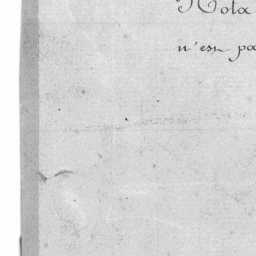 Nota
n'est pa